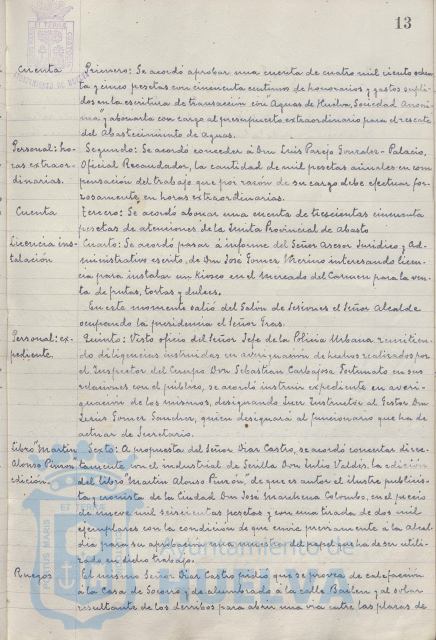 13
Cuenta Primero: Se acordó aprobar una cuenta de cuatro mil ciento ochen-
ta y cinco pesetas con cincuenta centimos de honorarios y gastos supli-
dos en la escritura de transacción con "Aguas de Huelva, Sociedad Anoni-
ma" y abonarla con cargo al presupuesto extraordinario para el rescate
del Abastecimiento de aguas.
Personal: ho- Segundo: Se acordó conceder a Don Luis Parejo Gonzalez-Palacio,
ras extraor- Oficial Recaudador, la cantidad de mil pesetas anuales en com-
dinarias. pensación del trabajo que por razón de su cargo debe efectuar for-
zosamente, en horas extraordinarias.
Cuenta Tercero: Se acordó abonar una cuenta de trescientas cincuenta
pesetas de atenciones de la Junta Provincial de Abasto
Licencia ins- Cuarto: Se acordó pasar a informe del Señor Asesor Juridico y Ad-
talación ministrativo escrito, de Don José Gomez Merino interesando licen-
cia para instalar un Kiosco en el Mercado del Carmen para la ven-
ta de frutas, tortas y dulces.
En este momento salió del Salón de Sesiones el Señor Alcalde
ocupando la presidencia el Señor Gras.
Personal: ex- Quinto: Visto oficio del Señor Jefe de la Policia Urbana remitien-
pediente do diligencias instruidas en averiguación de hechos realizados por
el Inspector del Cuerpo Don Sebastian Carbajosa Fortunato en sus
relaciones con el público, se acordó instruir expediente en averi-
guación de los mismos, designando Juez Instructor al Gestor Don
Jesus Gomez Sanchez, quien designará al funcionario que ha de
actuar de Secretario.
Libro "Martin Sexto: A propuesta del Señor Diaz Castro, se acordó concertar direc-
Alonso Pinzon tamente con el industrial de Sevilla Don Julio Valdés, la edición
edición. del libro "Martin Alonso Pinzón" de que es autor el ilustre publicis-
ta y cronista de la Ciudad Don José Marchena Colombo, en el precio
de nueve mil seiscientas pesetas y con una tirada de dos mil
ejemplares con la condición de que envie previamente a la Alcal-
dia para su aprobación una muestra del papel que ha de ser utili-
zado en dicho trabajo.
Ruegos El mismo Señor Diaz Castro pidió que se provea de calefacción
a la Casa de Socorro y de alumbrado a la calle Bailen y al solar
resultante de los derribos para abrir una via entre las plazas de
Ayuntamiento de
HUELVA